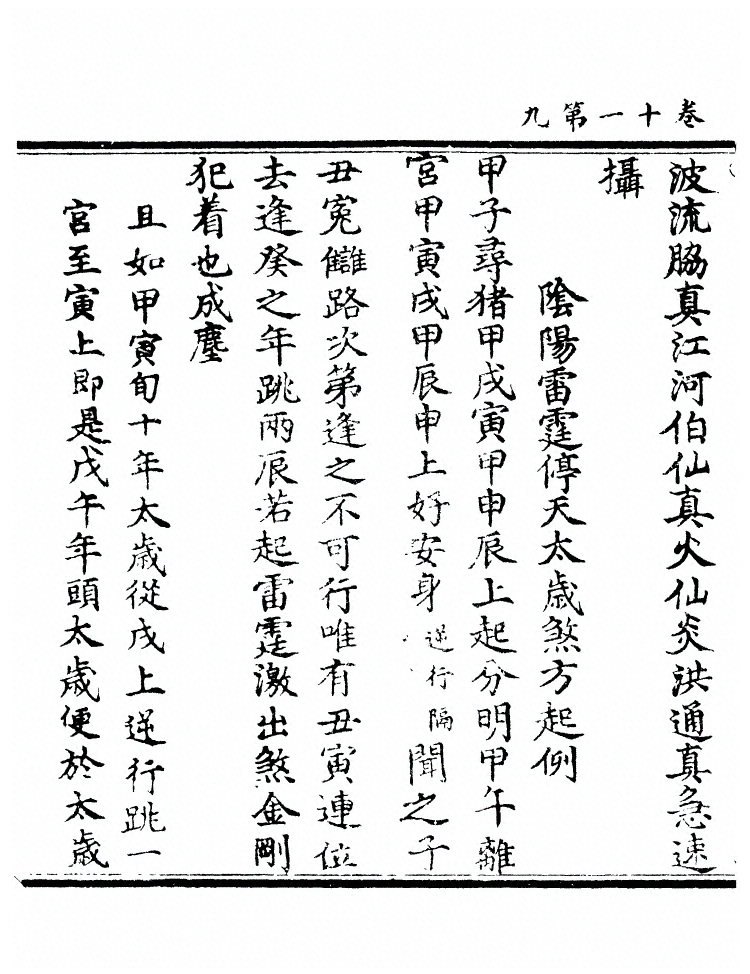 卷十一第九
波流脇真江河伯仙真火仙炎洪通真急速
攝
陰陽雷霆停天太歲煞方起例
甲子尋猪甲戌寅甲申辰上起分明甲午離
宮甲寅戌甲辰申上好安身逆行隔聞之子
丑冤讎路次第逢之不可行唯有丑寅連位
去逢癸之年跳兩辰若起雷霆激出煞金剛
犯着也成塵
且如甲寅旬十年太歲從戌上逆行跳一
宮至寅上即是戊午年頭太歲便於太歲